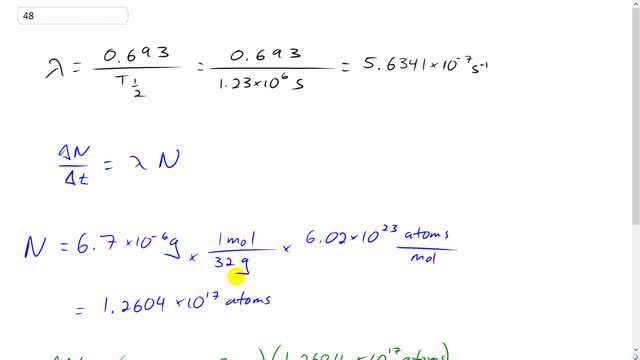 48
λ = 0.693 / T 1/2 = 0.693 / 1.23×10⁶ s = 5.6341×10⁻⁷ s⁻¹
ΔN / Δt = λ N
N = 6.7×10⁻⁶ g × 1 mol / 32 g × 6.02×10²³ atoms / mol
= 1.2604×10¹⁷ atoms
)(1.2604×10¹⁷ atoms)